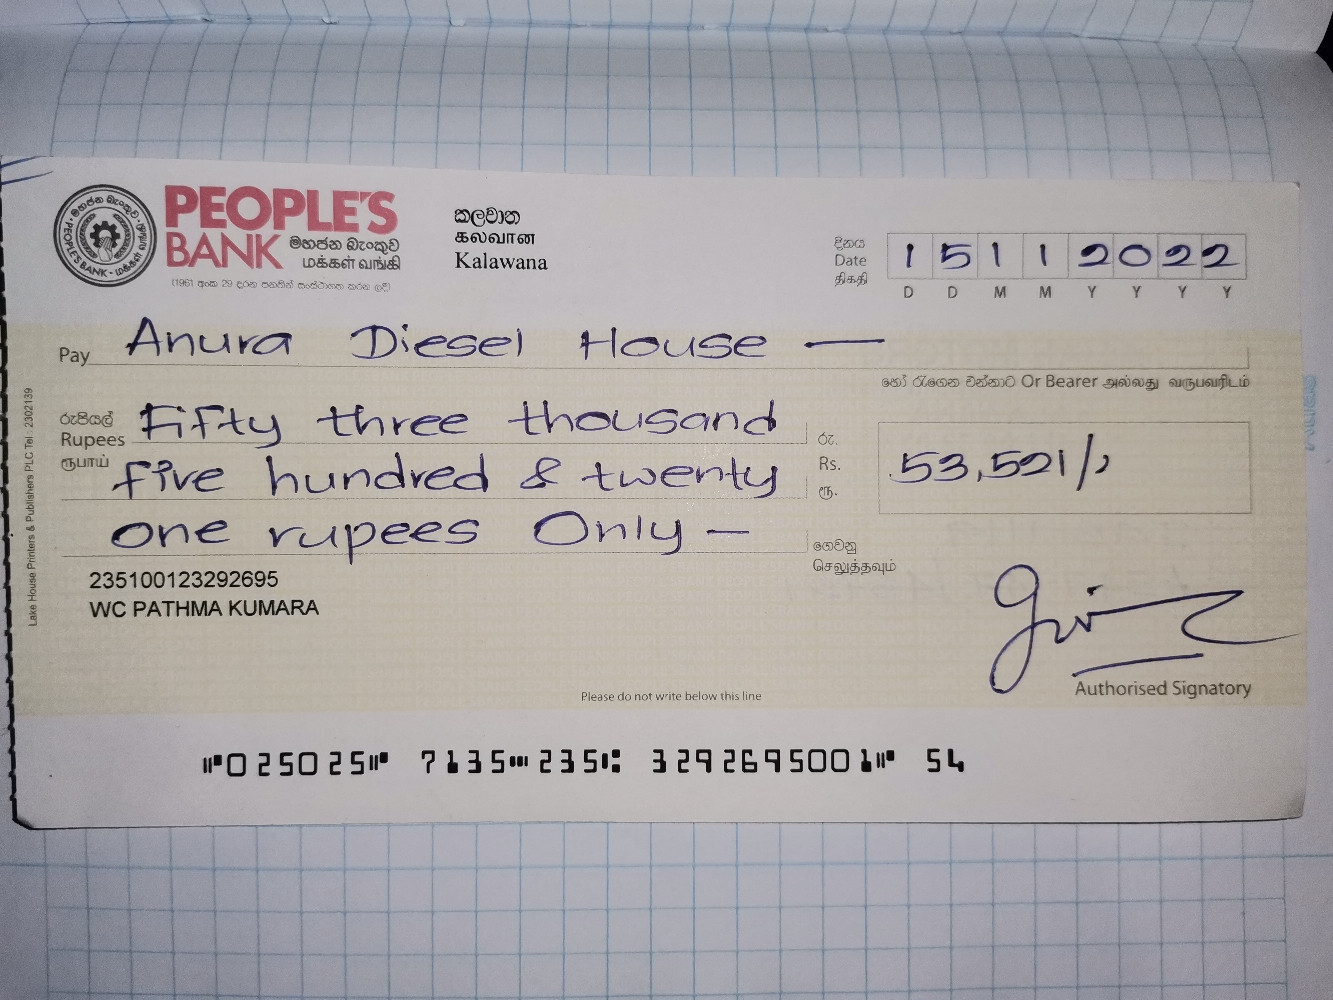 PEOPLE'S
BANK මහජන බැංකුව
மக்கள் வங்கி
(1961 අංක 29 දරන පනතින් සංස්ථාගත කරන ලදී)
මහජන බැංකුව · PEOPLE'S BANK · மக்கள் வங்கி
කලවාන
கலவான
Kalawana
දිනය
Date
திகதி
1 5 1 1 2 0 2 2
D D M M Y Y Y Y
Pay Anura Diesel House —
හෝ රැගෙන එන්නාට Or Bearer அல்லது வருபவரிடம்
රුපියල්
Rupees
ரூபாய்
Fifty three thousand
five hundred & twenty
one rupees Only —
රු.
Rs.
ரூ.
53,521/,
ගෙවනු
செலுத்தவும்
235100123292695
WC PATHMA KUMARA
Authorised Signatory
Please do not write below this line
⑈025025⑈ 7135⑉235⑆ 3292695001⑈ 54
Lake House Printers & Publishers PLC Tel : 2302139